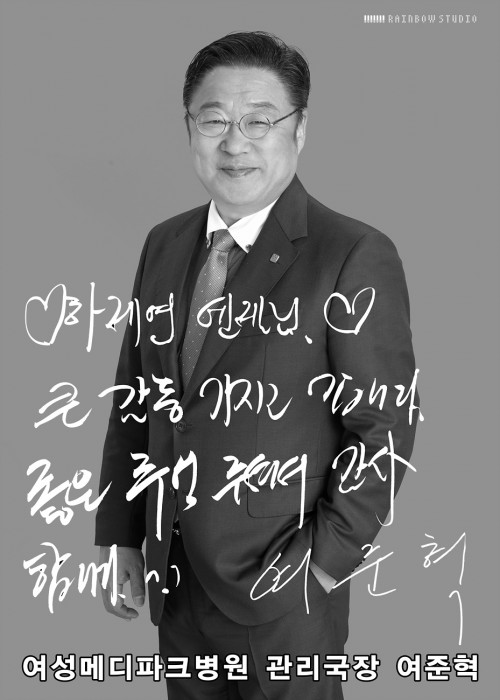 RAINBOW STUDIO
♡하레영 엔레님, ♡
큰 감동 가지고 갑니다.
좋은 추억 주셔서 감사
여준혁
여성메디파크병원 관리국장 여준혁